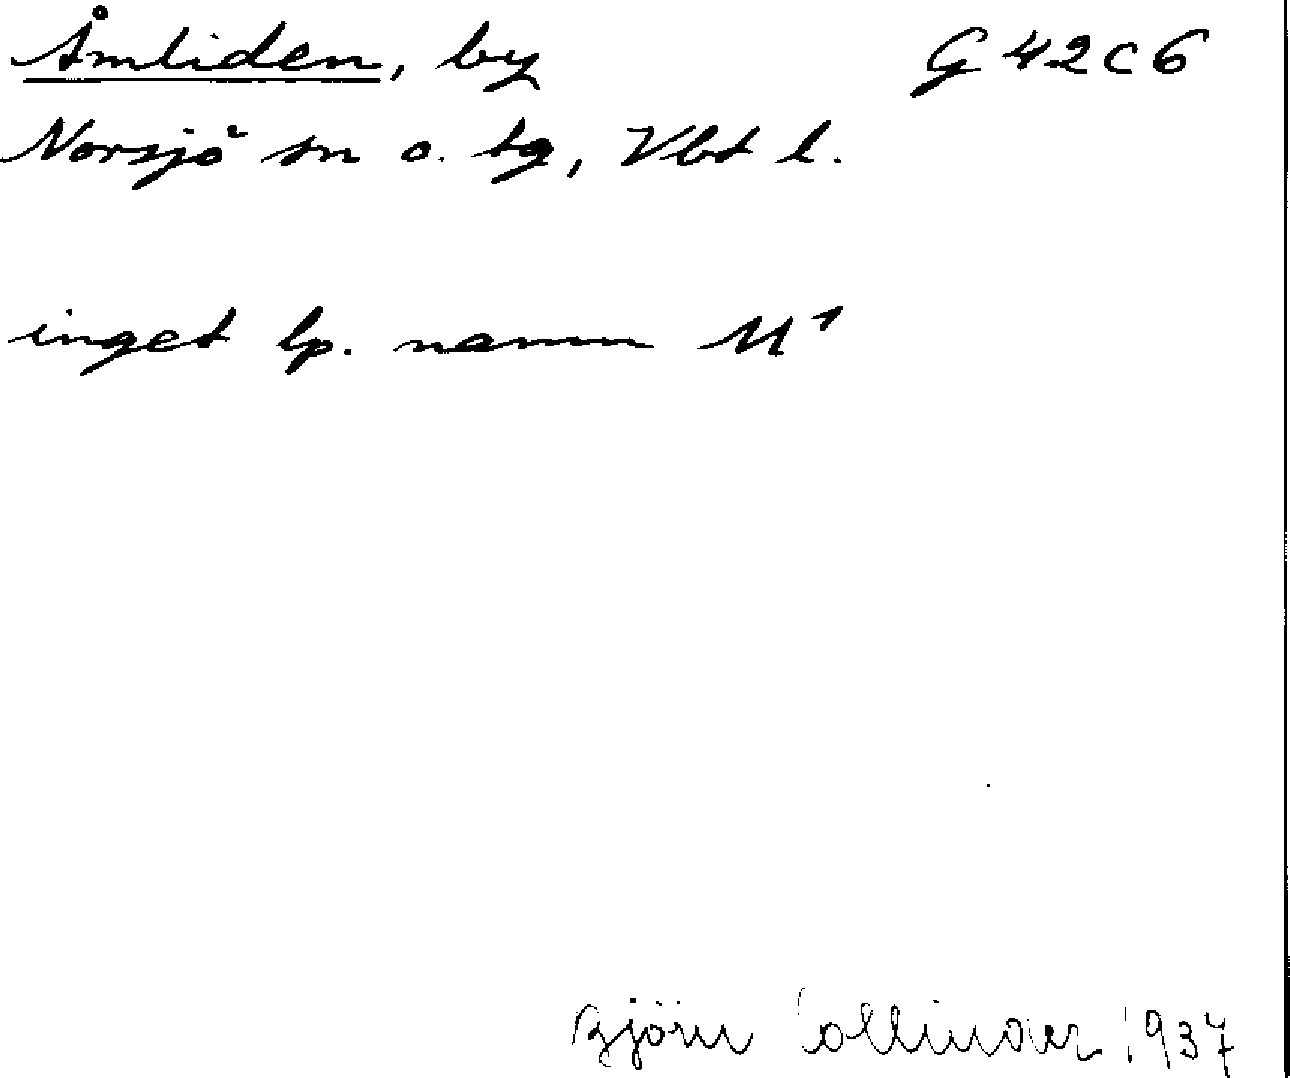 Åmliden, by G 42 c 6
Norsjö sn o. tg, Vbt l.
inget lp. namn M¹
Björn Collinder 1937